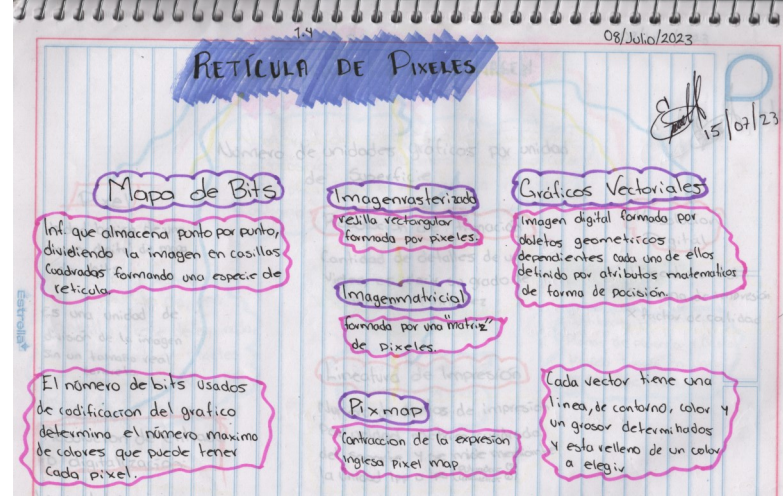 1.4
08/Julio/2023
RETÍCULA DE PIXELES
15/07/23
Mapa de Bits
Inf. que almacena punto por punto,
dividiendo la imagen en casillas
Cuadradas formando una especie de
reticula.
El número de bits usados
de codificacion del grafico
determina el número maximo
de colores que puede tener
cada pixel.
Imagenrasterizada
rejilla rectangular
formada por pixeles.
Imagenmatricial
formada por una "matriz"
de pixeles.
Pixmap
Contraccion de la expresion
inglesa pixel map
Gráficos Vectoriales
Imagen digital formada por
geometricos
dependientes cada uno de ellos
definido por atributos matematios
de forma de pocisión.
Cada vector tiene una
linea, de contorno, color y
un grosor determinados
y esta relleno de un color
a elegir
Estrella